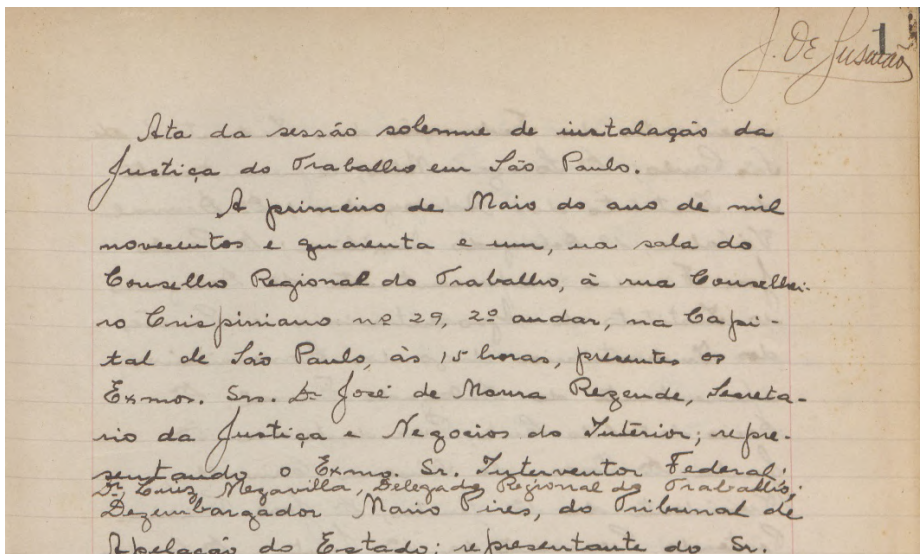 1
J. De
Ata da sessão solemne de installação da
Justiça do Trabalho em São Paulo.
A primeiro de Maio do ano de mil
novecentos e quarenta e um, na sala do
Conselho Regional do Trabalho, à rua Conselhei-
ro Crispiniano nº 29, 2º andar, na Capi-
tal de São Paulo, às 15 horas, presentes os
Exmos. Srs. Dr José de Moura Rezende, Secreta-
rio da Justiça e Negocios do Interior; repre-
sentando o Exmo. Sr. Interventor Federal;
Dr. Luiz Mezavilla, Delegado Regional do Trabalho;
Dezembargador Mario Pires, do Tribunal de
Apelação do Estado; representante do Sr.